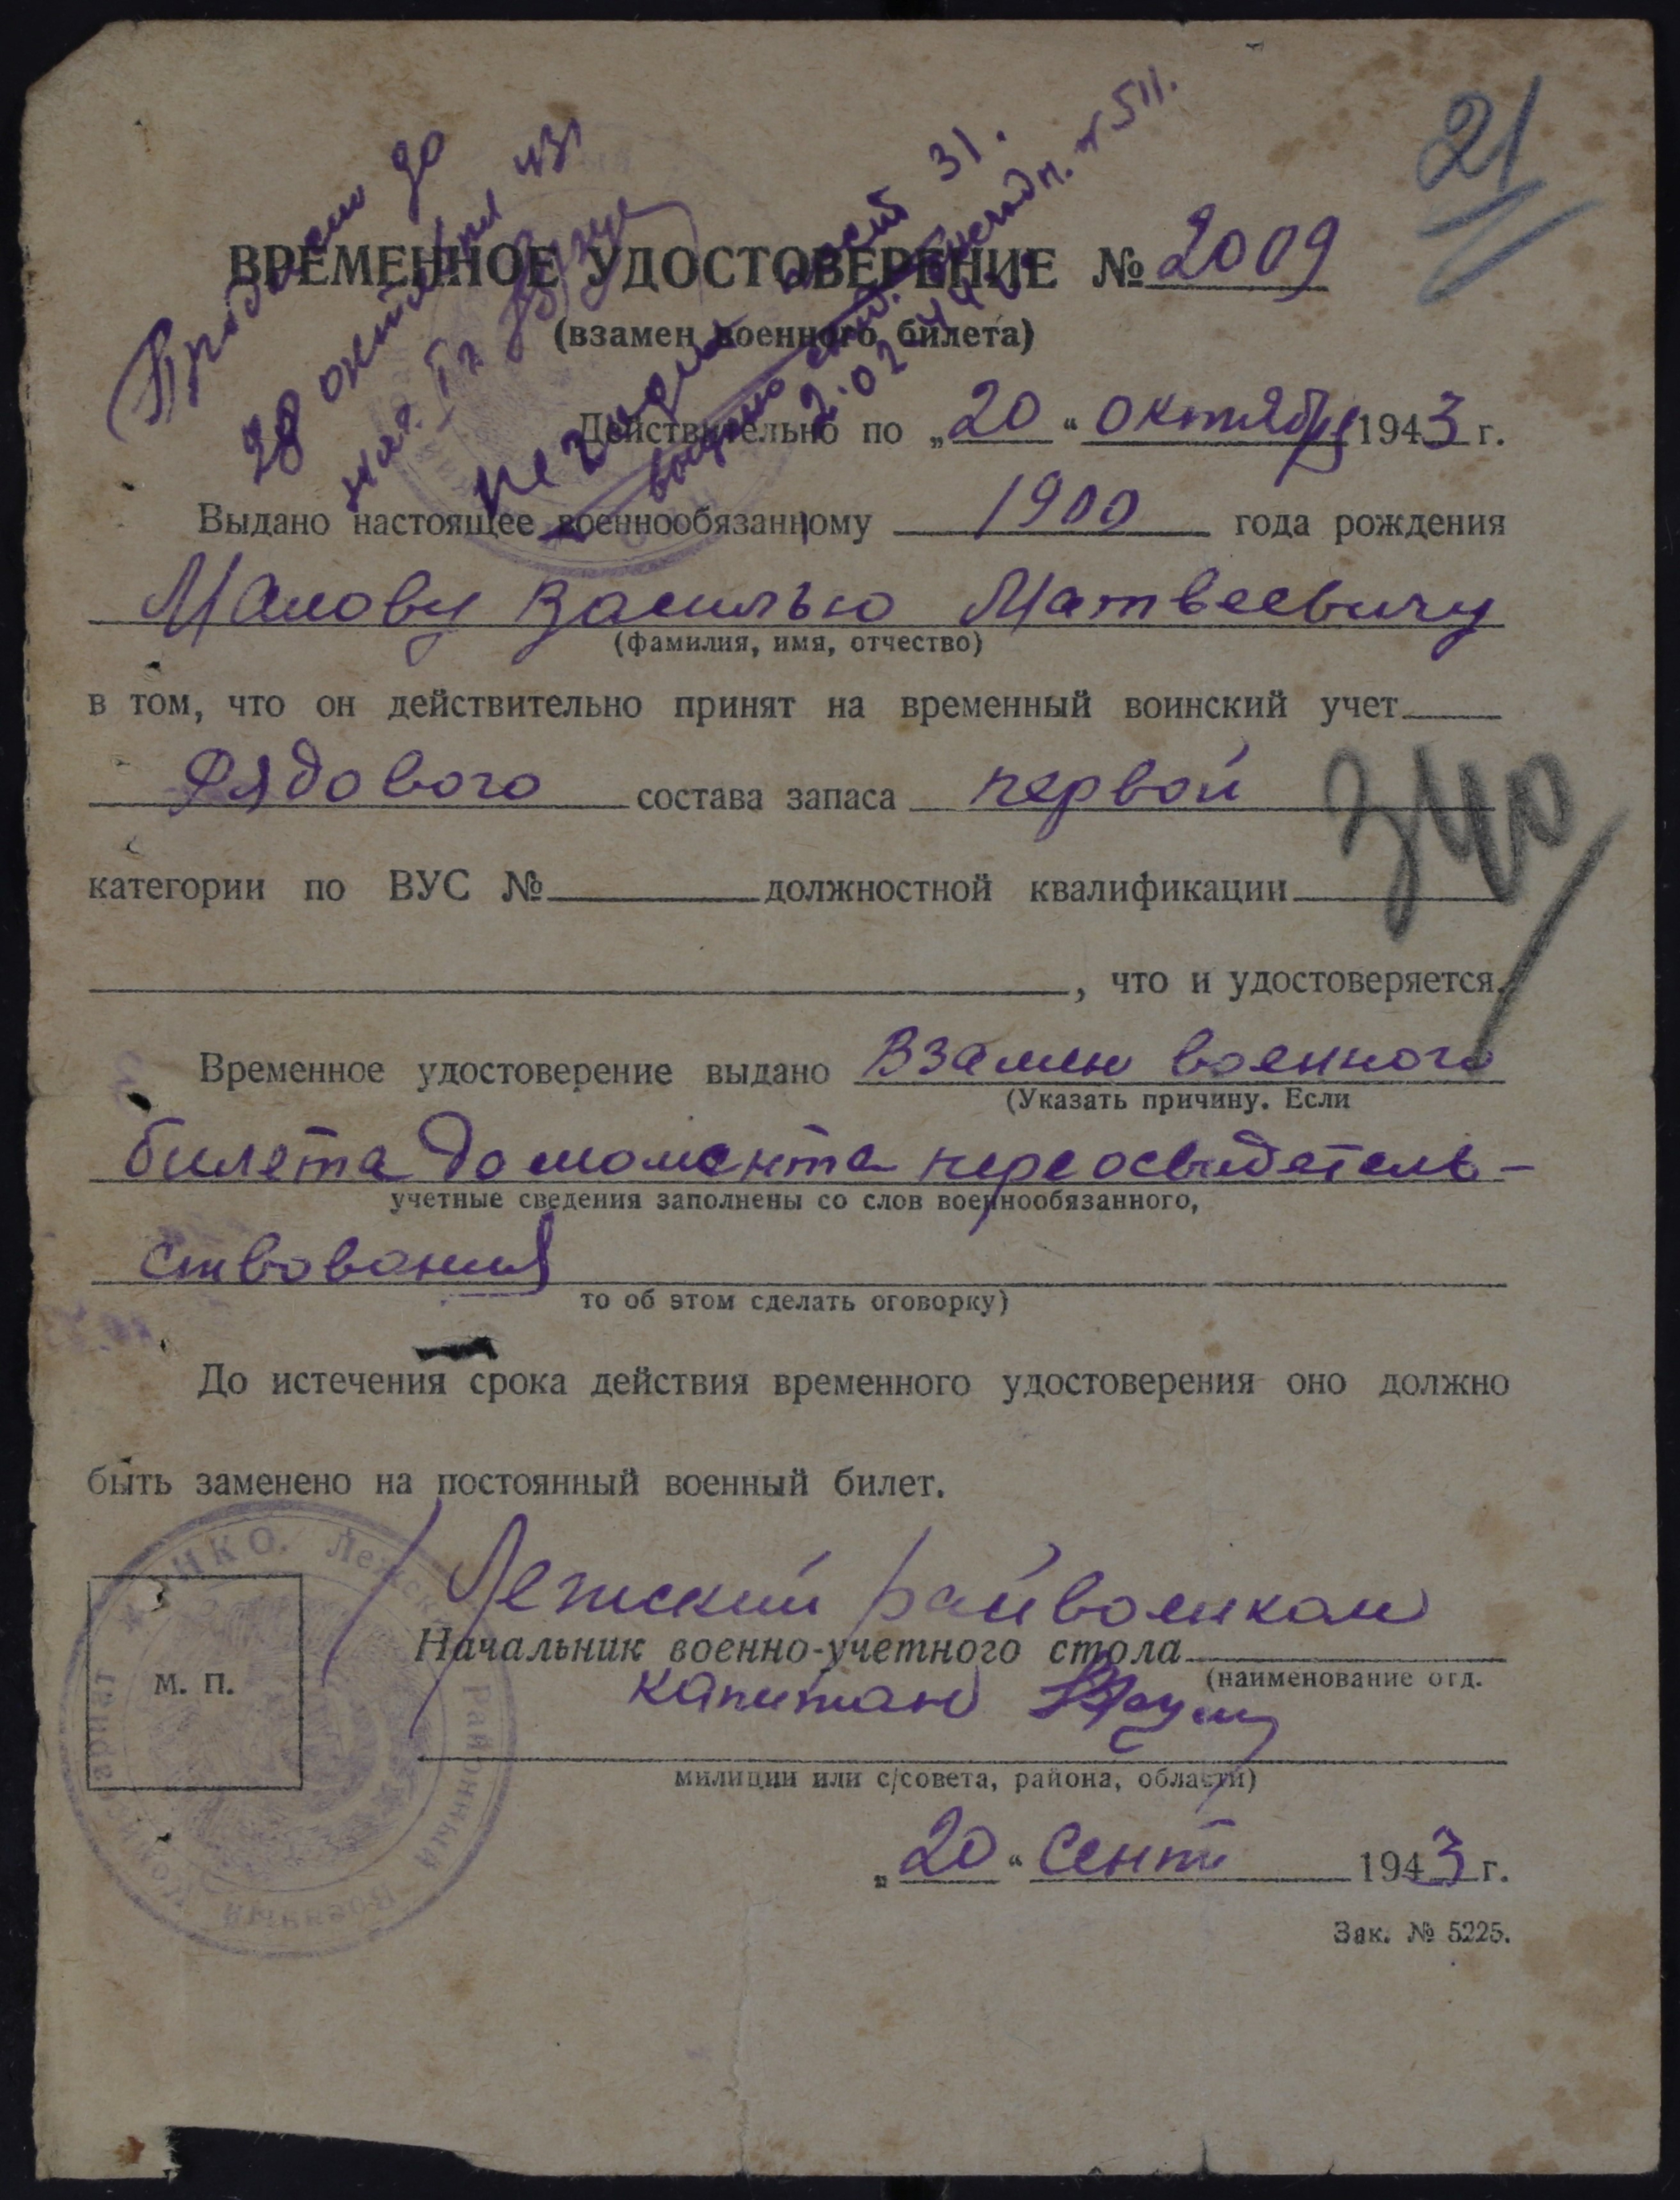 21
Продлено до
28 октября 43 г
ВРЕМЕННОЕ УДОСТОВЕРЕНИЕ № 2009
(взамен военного билета)
Действительно по „20“ октября 1943 г.
Выдано настоящее военнообязанному 1900 года рождения
Малову Василью Матвеевичу
(фамилия, имя, отчество)
в том, что он действительно принят на временный воинский учет
Рядового состава запаса первой
340
категории по ВУС № должностной квалификации
, что и удостоверяется.
Временное удостоверение выдано Взамен военного
(Указать причину. Если
билета до момента переосвидетель-
учетные сведения заполнены со слов военнообязанного,
ствования
то об этом сделать оговорку)
До истечения срока действия временного удостоверения оно должно
быть заменено на постоянный военный билет.
НКО. Районный Военный
Лежский райвоенком
Начальник военно-учетного стола
М. П.
(наименование отд.
капитан
милиции или с/совета, района, области)
„20“ Сент 1943 г.
Зак. № 5225.